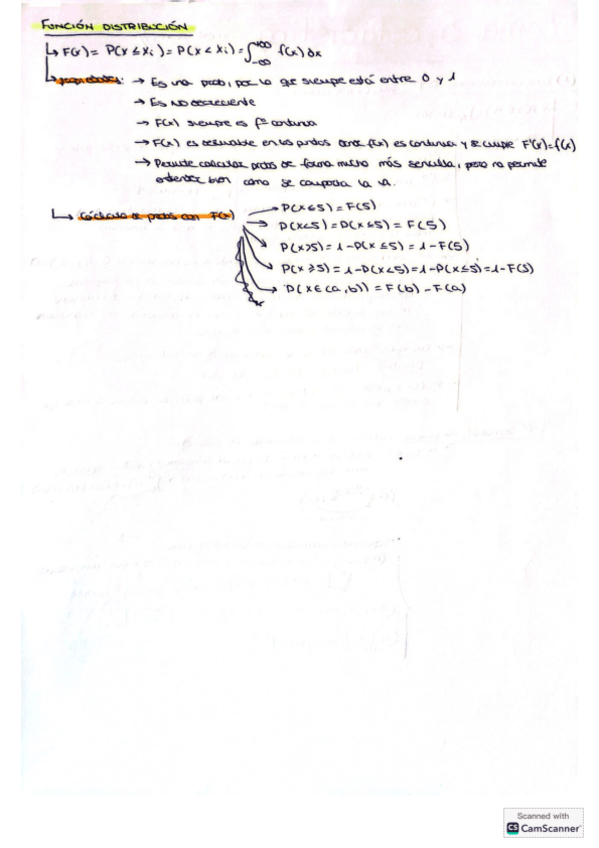 FUNCIÓN DISTRIBUCIÓN
F(x) = P(X ≤ xi) = P(X < xi) = ∫_{-∞}^{+∞} f(x) dx
propiedades: → Es una prob, por lo que siempre está entre 0 y 1
→ Es NO decreciente
→ F(x) siempre es fº continua
→ F(x) es derivable en los puntos donde f(x) es continua y se cumple F'(x) = f(x)
→ Permite calcular probs de forma mucho más sencilla, pero no permite
entender bien cómo se comporta la va.
Cálculo de probs con F(x) → P(X ≤ 5) = F(5)
→ P(X < 5) = P(X ≤ 5) = F(5)
→ P(X > 5) = 1 - P(X ≤ 5) = 1 - F(5)
→ P(X ≥ 5) = 1 - P(X < 5) = 1 - P(X ≤ 5) = 1 - F(5)
→ P(X ∈ (a, b)) = F(b) - F(a)
Scanned with
CS CamScanner